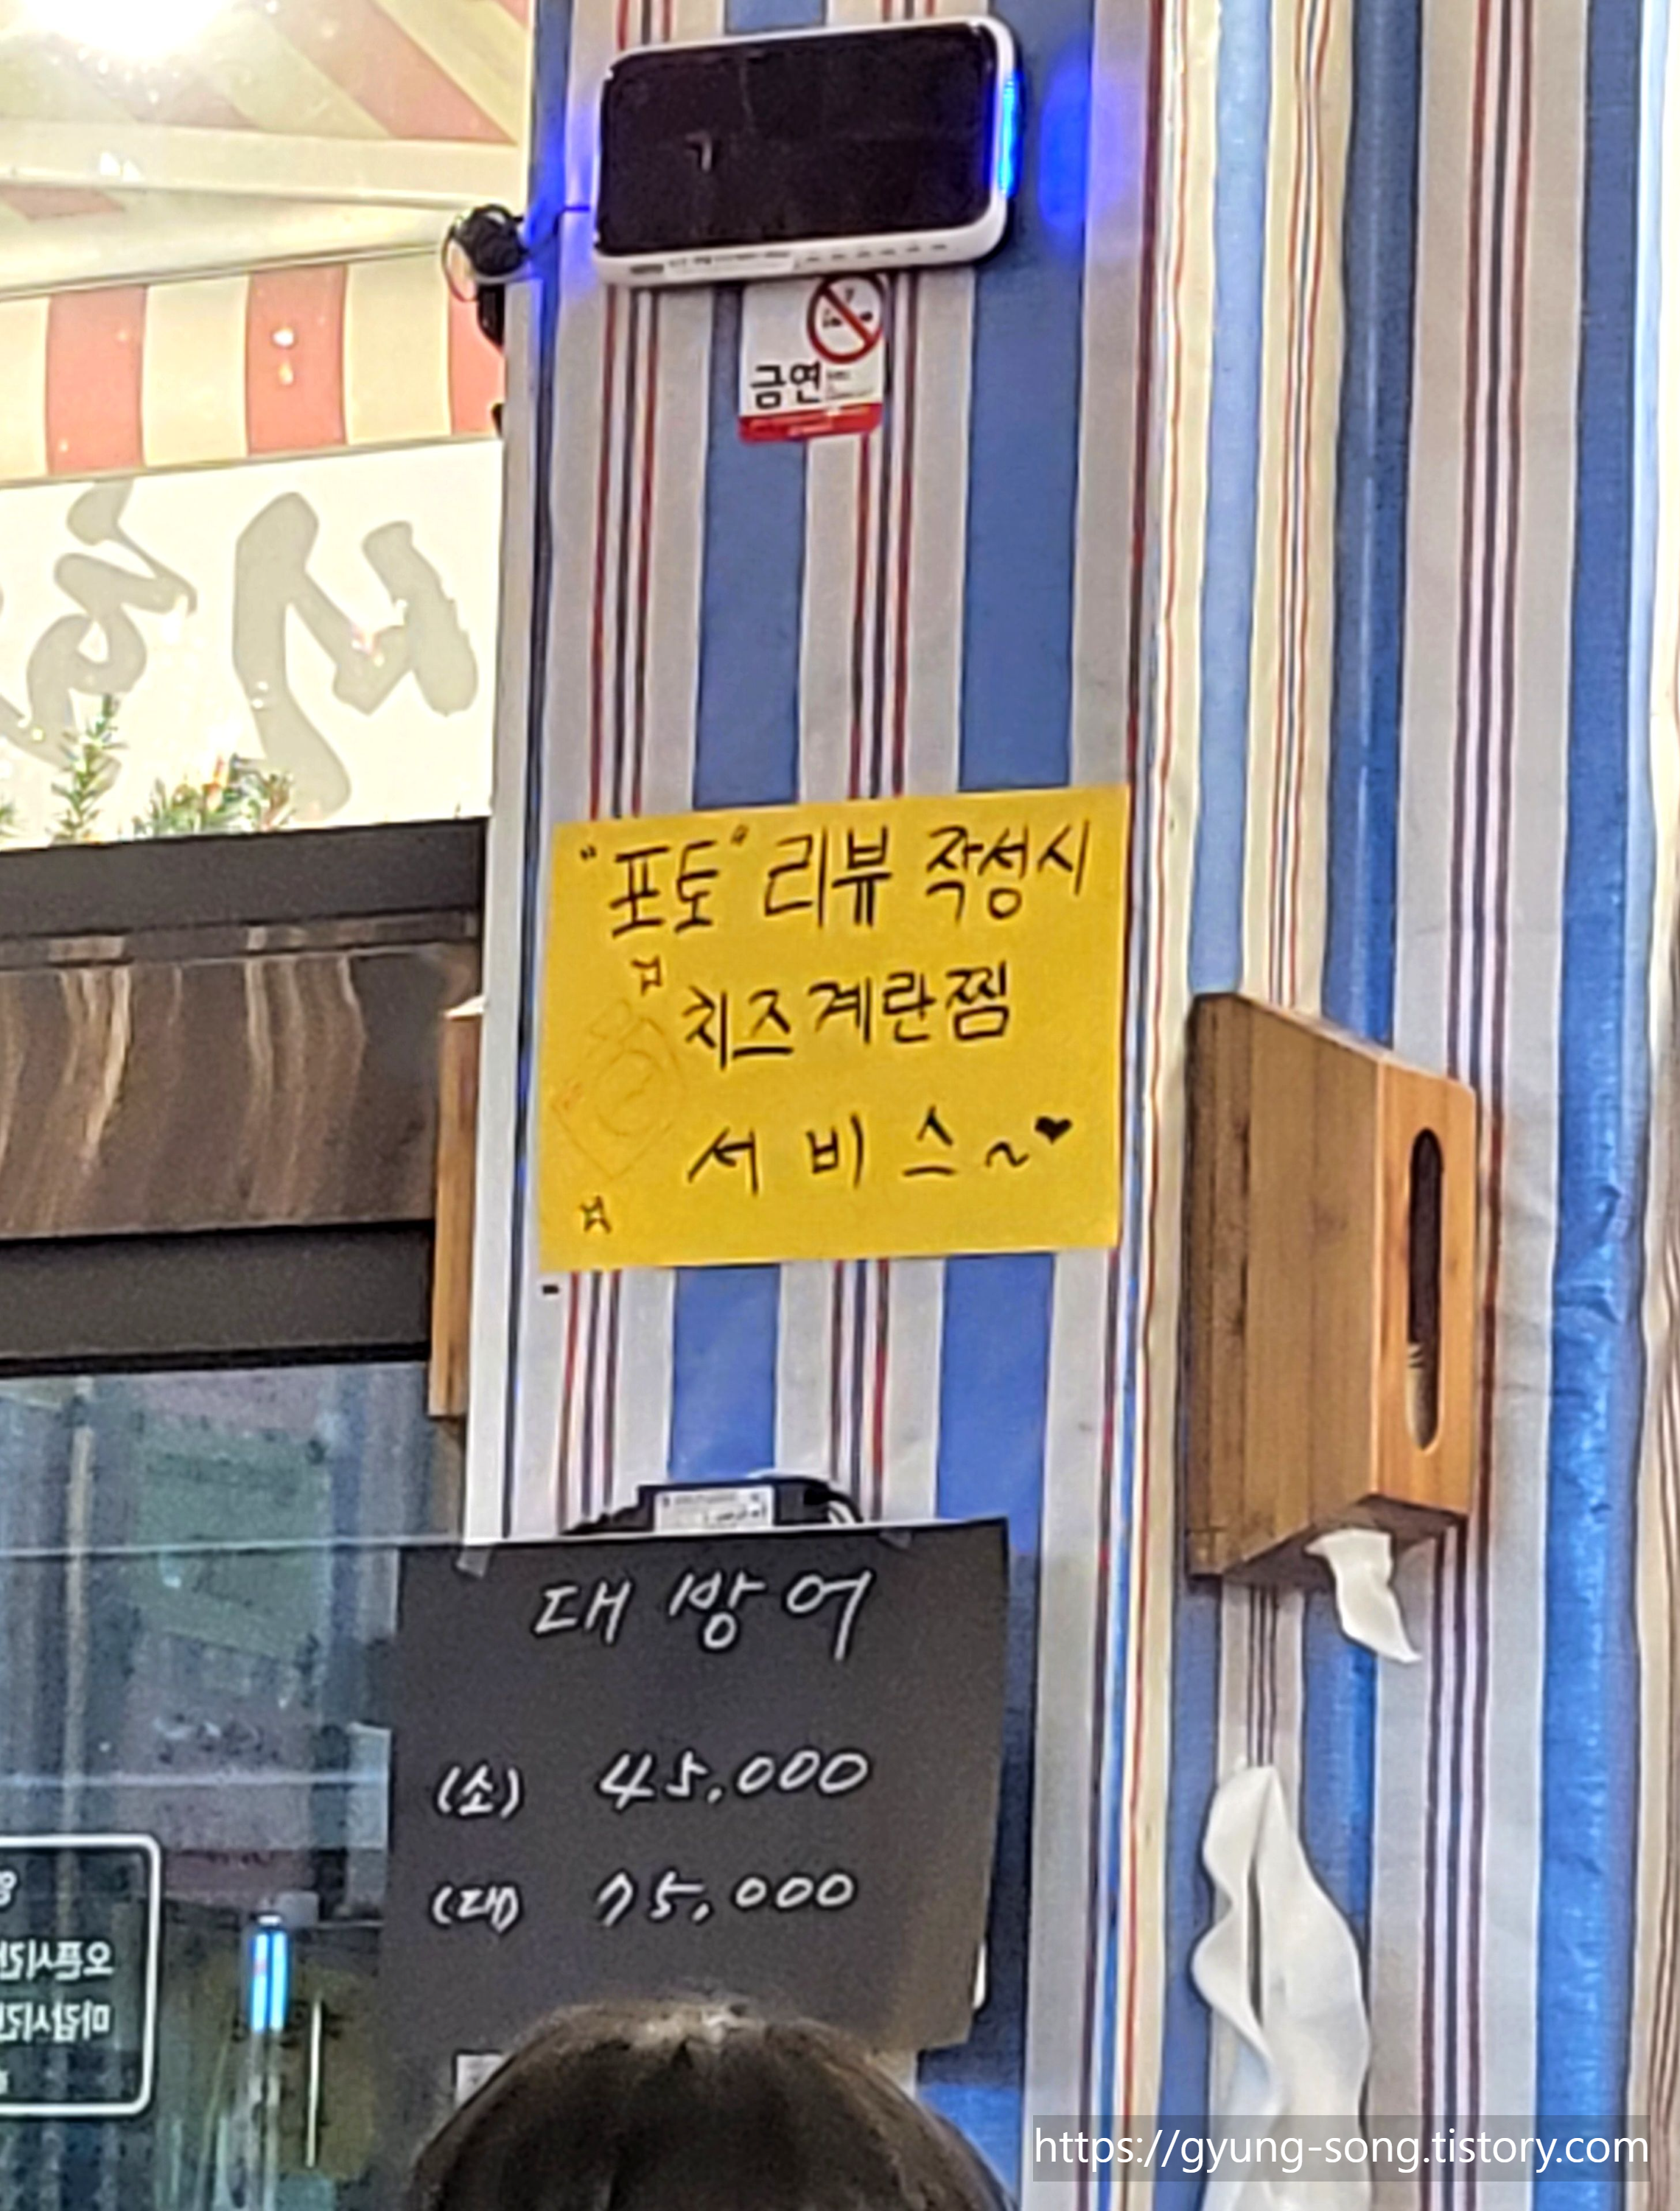 금연
"포토" 리뷰 작성시
치즈계란찜
서비스~♥
대방어
(소) 45,000
(대) 75,000
오픈시간
마감시간
https://gyung-song.tistory.com